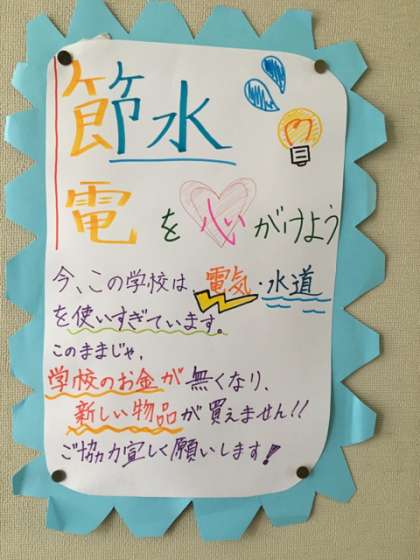 節水
電を心がけよう
今、この学校は、電気・水道
を使いすぎています。
このままじゃ、
学校のお金が無くなり、
新しい物品が買えません!!
ご協力宜しく願いします!